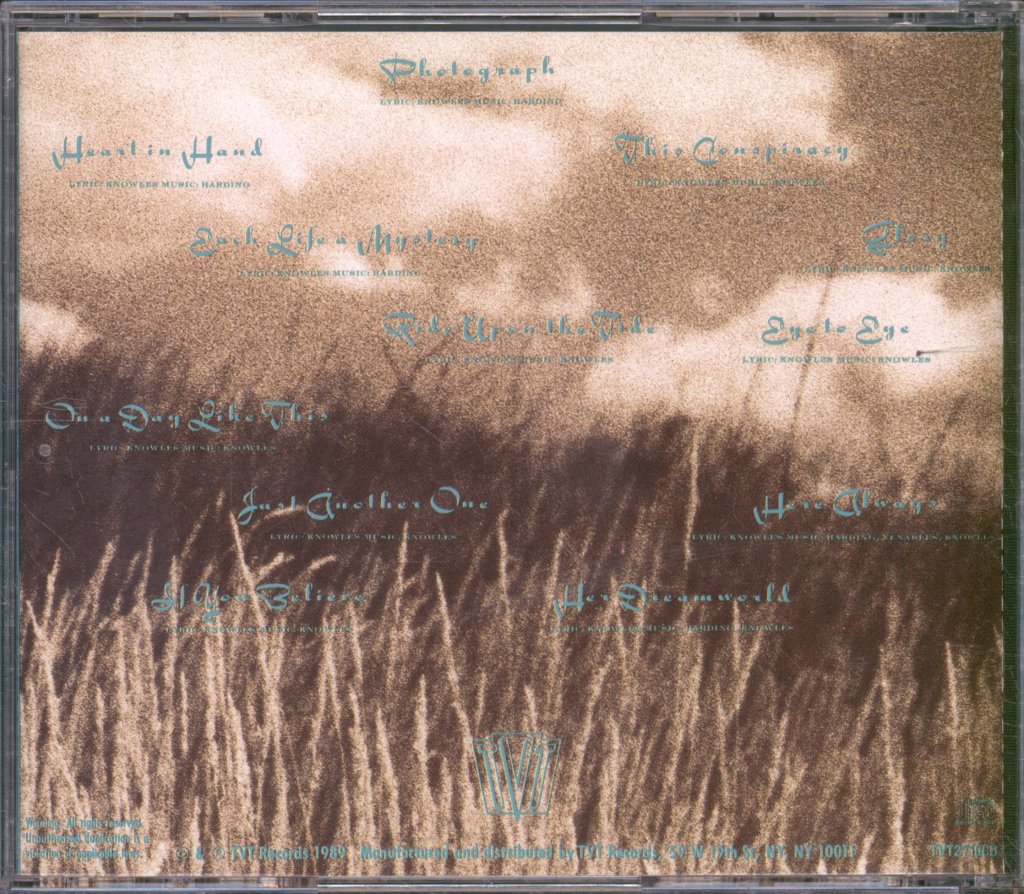 Photograph
LYRIC: KNOWLES MUSIC: HARDING
Heart in Hand
LYRIC: KNOWLES MUSIC: HARDING
This Conspiracy
LYRIC: KNOWLES MUSIC: KNOWLES
Each Life a Mystery
LYRIC: KNOWLES MUSIC: HARDING
Glory
LYRIC: KNOWLES MUSIC: KNOWLES
Ride Upon the Tide
LYRIC: KNOWLES MUSIC: KNOWLES
Eye to Eye
LYRIC: KNOWLES MUSIC: KNOWLES
On a Day Like This
LYRIC: KNOWLES MUSIC: KNOWLES
Just Another One
LYRIC: KNOWLES MUSIC: KNOWLES
Here Always
LYRIC: KNOWLES MUSIC: HARDING, VENABLES, KNOWLES
If You Believe
LYRIC: KNOWLES MUSIC: KNOWLES
Her Dreamworld
LYRIC: KNOWLES MUSIC: HARDING, KNOWLES
TVT
Warning: All rights reserved.
Unauthorized duplication is a
violation of applicable laws.
© & ℗ TVT Records 1989 Manufactured and distributed by TVT Records, 59 W 19th St, NY, NY 10011
TVT2710CD